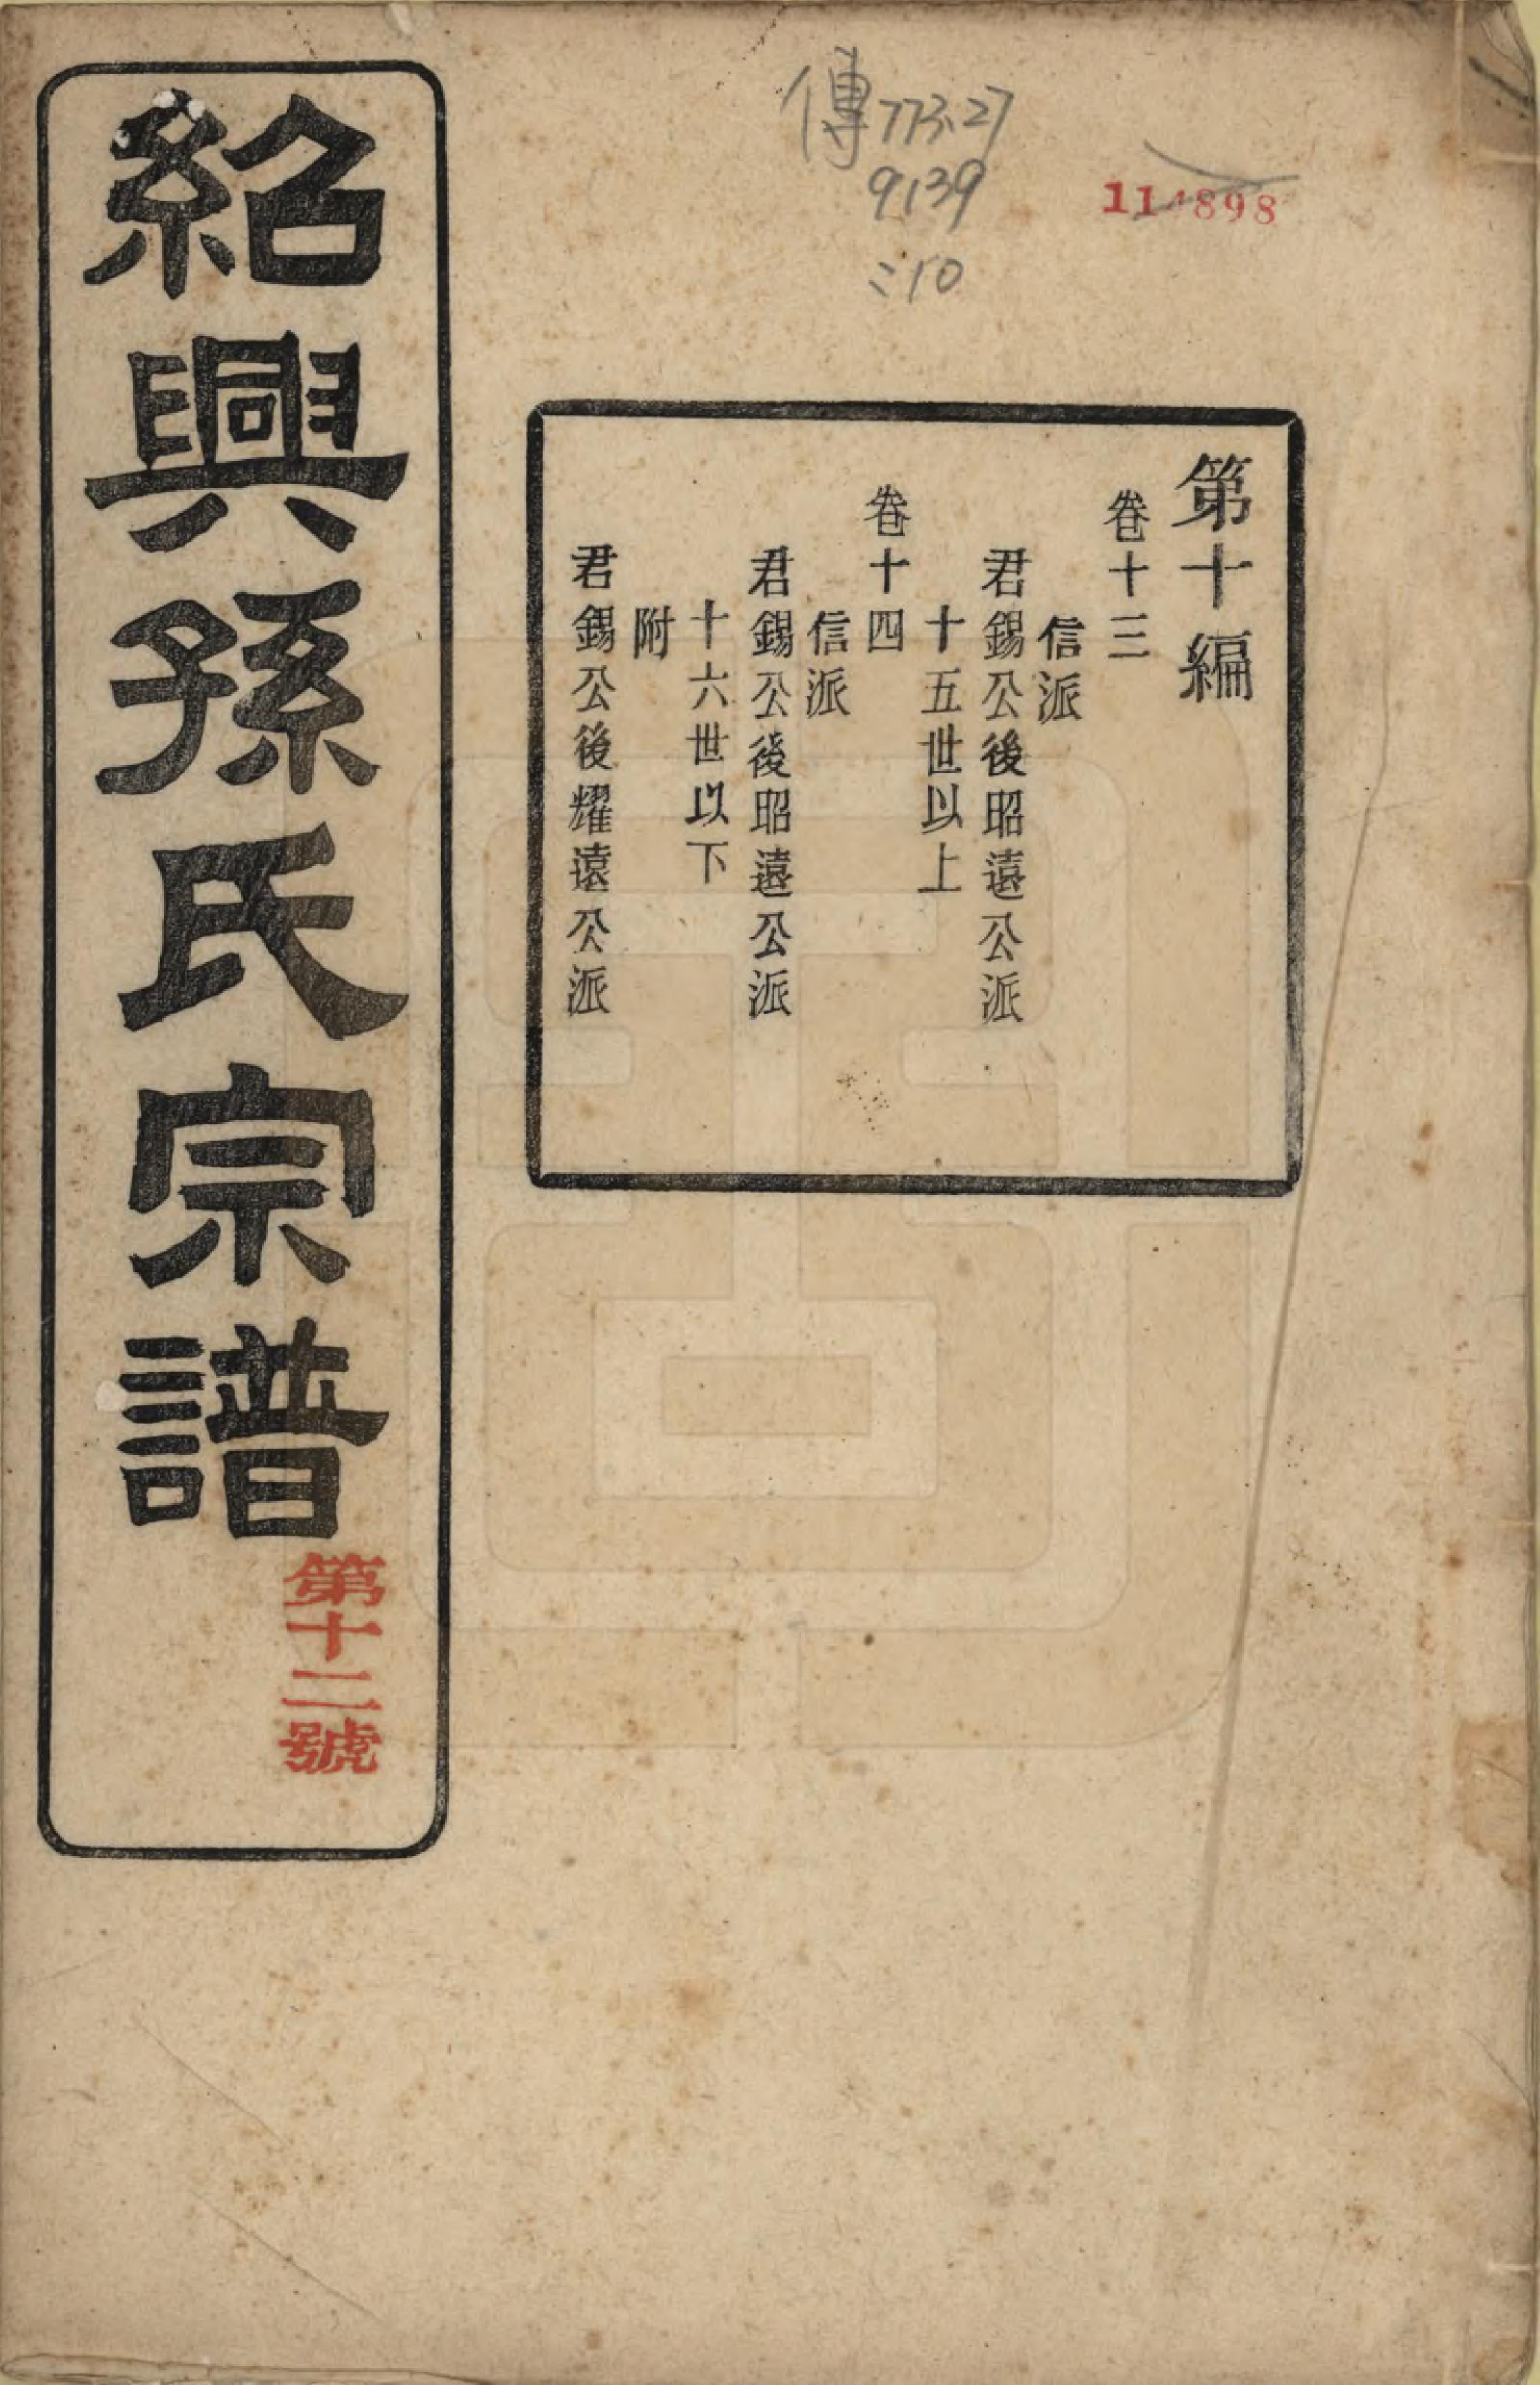 傳773.27
9139
:10
114898
第十編
卷十三
信派
君錫公後昭遠公派
十五世以上
卷十四
信派
君錫公後昭遠公派
十六世以下
附
君錫公後耀遠公派
紹興孫氏宗譜
第十二號